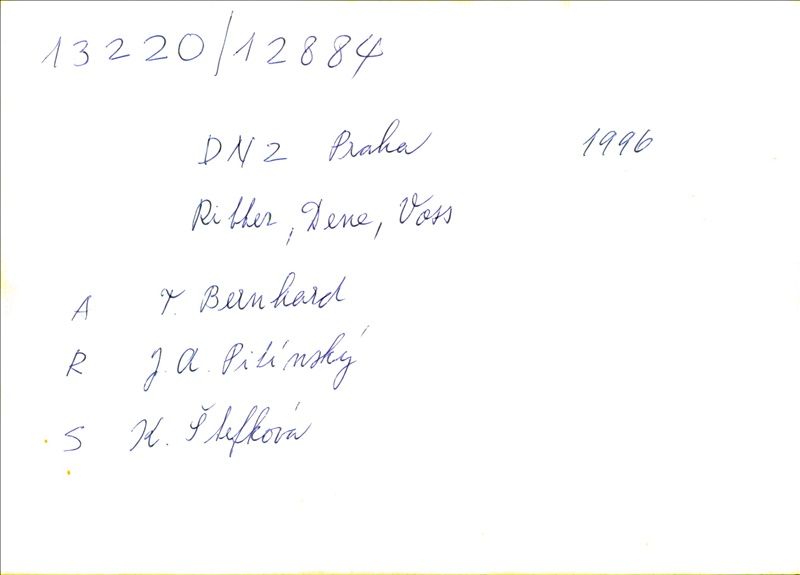 13220/12884
DNZ Praka 1996
Ritter, Dene, Voss
A T. Bernhard
R J. A. Pitínský
S K. Štefková